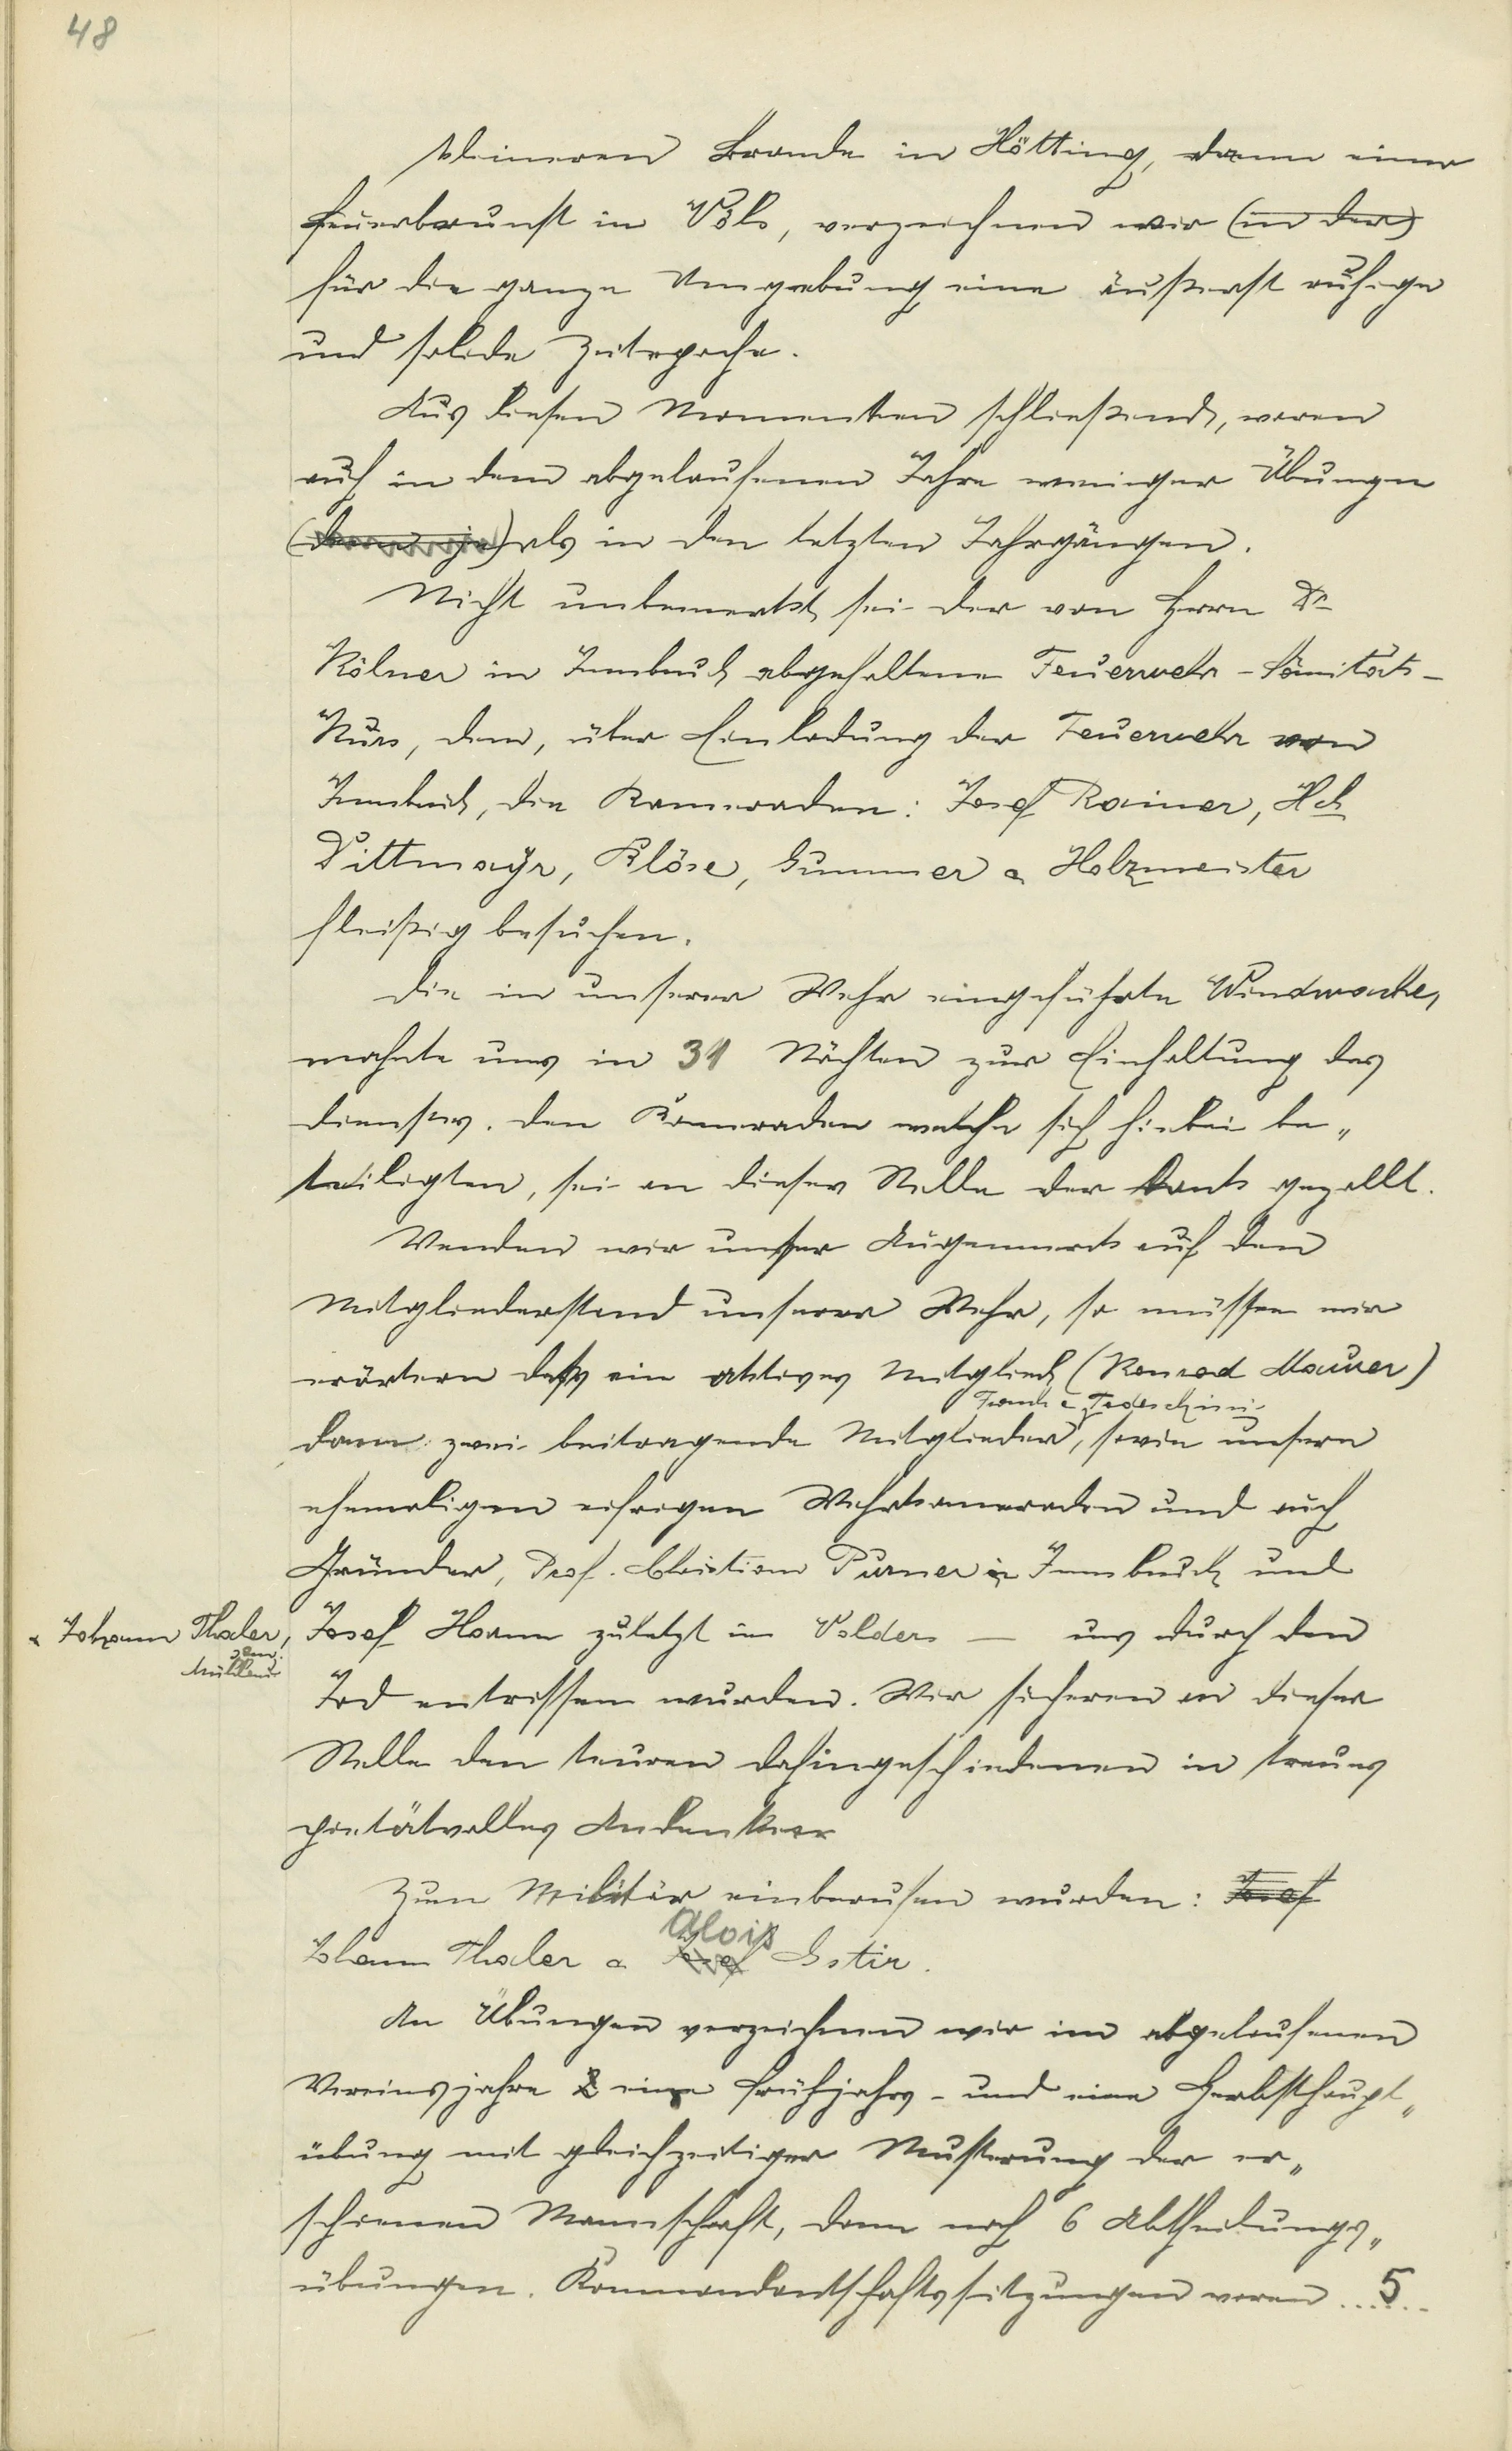 48
kleineren Brande in Hötting, dann einer
Feuerbrunst in Völs, verzeichnen wir (in der)
für die ganze Umgebung eine äußerst ruhige
und solide Zeitepoche.
Aus diesen Momenten schließend, waren
auch in dem abgelaufenen Jahre weniger Übungen
(denn je) als in den letzten Jahrgängen.
Nicht unbemerkt sei der von Herrn Dr
Kölner in Innsbruck abgehaltene Feuerwehr-Sanitäts-
Kurs, den, über Einladung der Feuerwehr von
Innsbruck, die Kameraden: Josef Rainer, Hch
Dittmayr, Klöse, Gummer & Holzmeister
fleißig besuchen.
Die in unserer Wehr eingeführte Windwache,
mahnte uns in 31 Nächten zur Einhaltung des
Dienstes. Den Kameraden welche sich hiebei be„
teiligten, sei an dieser Stelle der Dank gezollt.
Wenden wir unser Augenmerk auf den
Mitgliederstand unserer Wehr, so müssen wir
erörtern daß ein aktives Mitglied (Konrad Mauser)
Frank & Tedeschini
dann zwei beitragende Mitglieder, sowie unsern
ehemaligen eifrigen Wehrkameraden und auch
Gründer, Prof. Christian Purner in Innsbruck und
& Johann Thaler, Josef Hoann zuletzt in Volders — uns durch den
Mühlau
Tod entrissen wurden. Wir sicheren an dieser
Stelle den teuren Dahingeschiedenen in treues
pietätvolles Andenken
Zum Militär einberufen wurden: Josef
Alois
Johann Thaler & Josef Gstir.
An Übungen verzeichnen wir im abgelaufenen
Vereinsjahre 2 eine Frühjahrs- und eine Herbsthaupt„
übung mit gleichzeitiger Musterung der er„
schienen Mannschaft, dann noch 6 Abtheilungs„
übungen. Kommandantschaftssitzungen waren ..5..